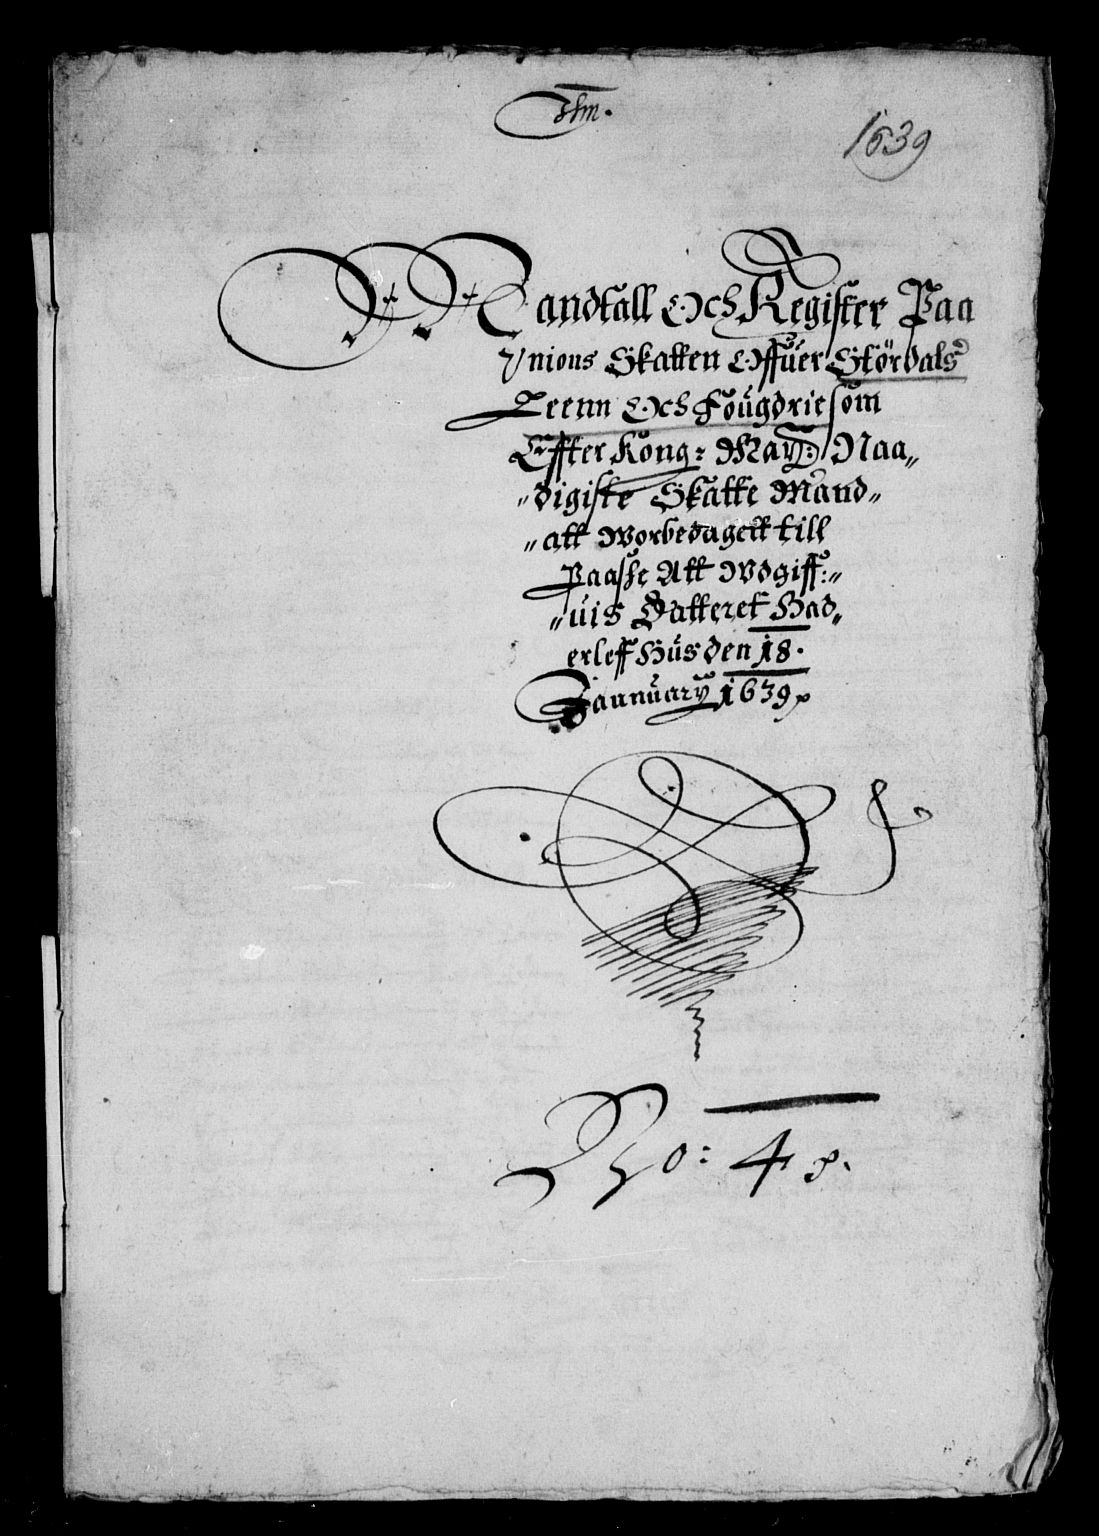 Thm.
1639
Mandtall Och Register Paa
Unions Skatten Offuer Stördals
Leenn Och Fougdrie som
Effter Kong: May: Naa„
„digiste Skatte Mand„
„att Worbedagett till
Paaske Att Wdgiff:„
„uis Datteret Had„
erleff Hus den 18.
Jannuary 1639
No: 4